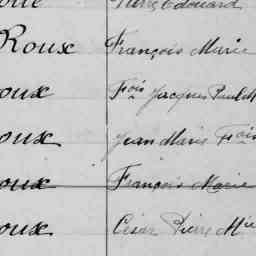 Pierre Edouard
Roux François Marie
oux Fois Jacques Paul M
oux Jean Marie Fois
oux François Marie
oux César Pierre Mie